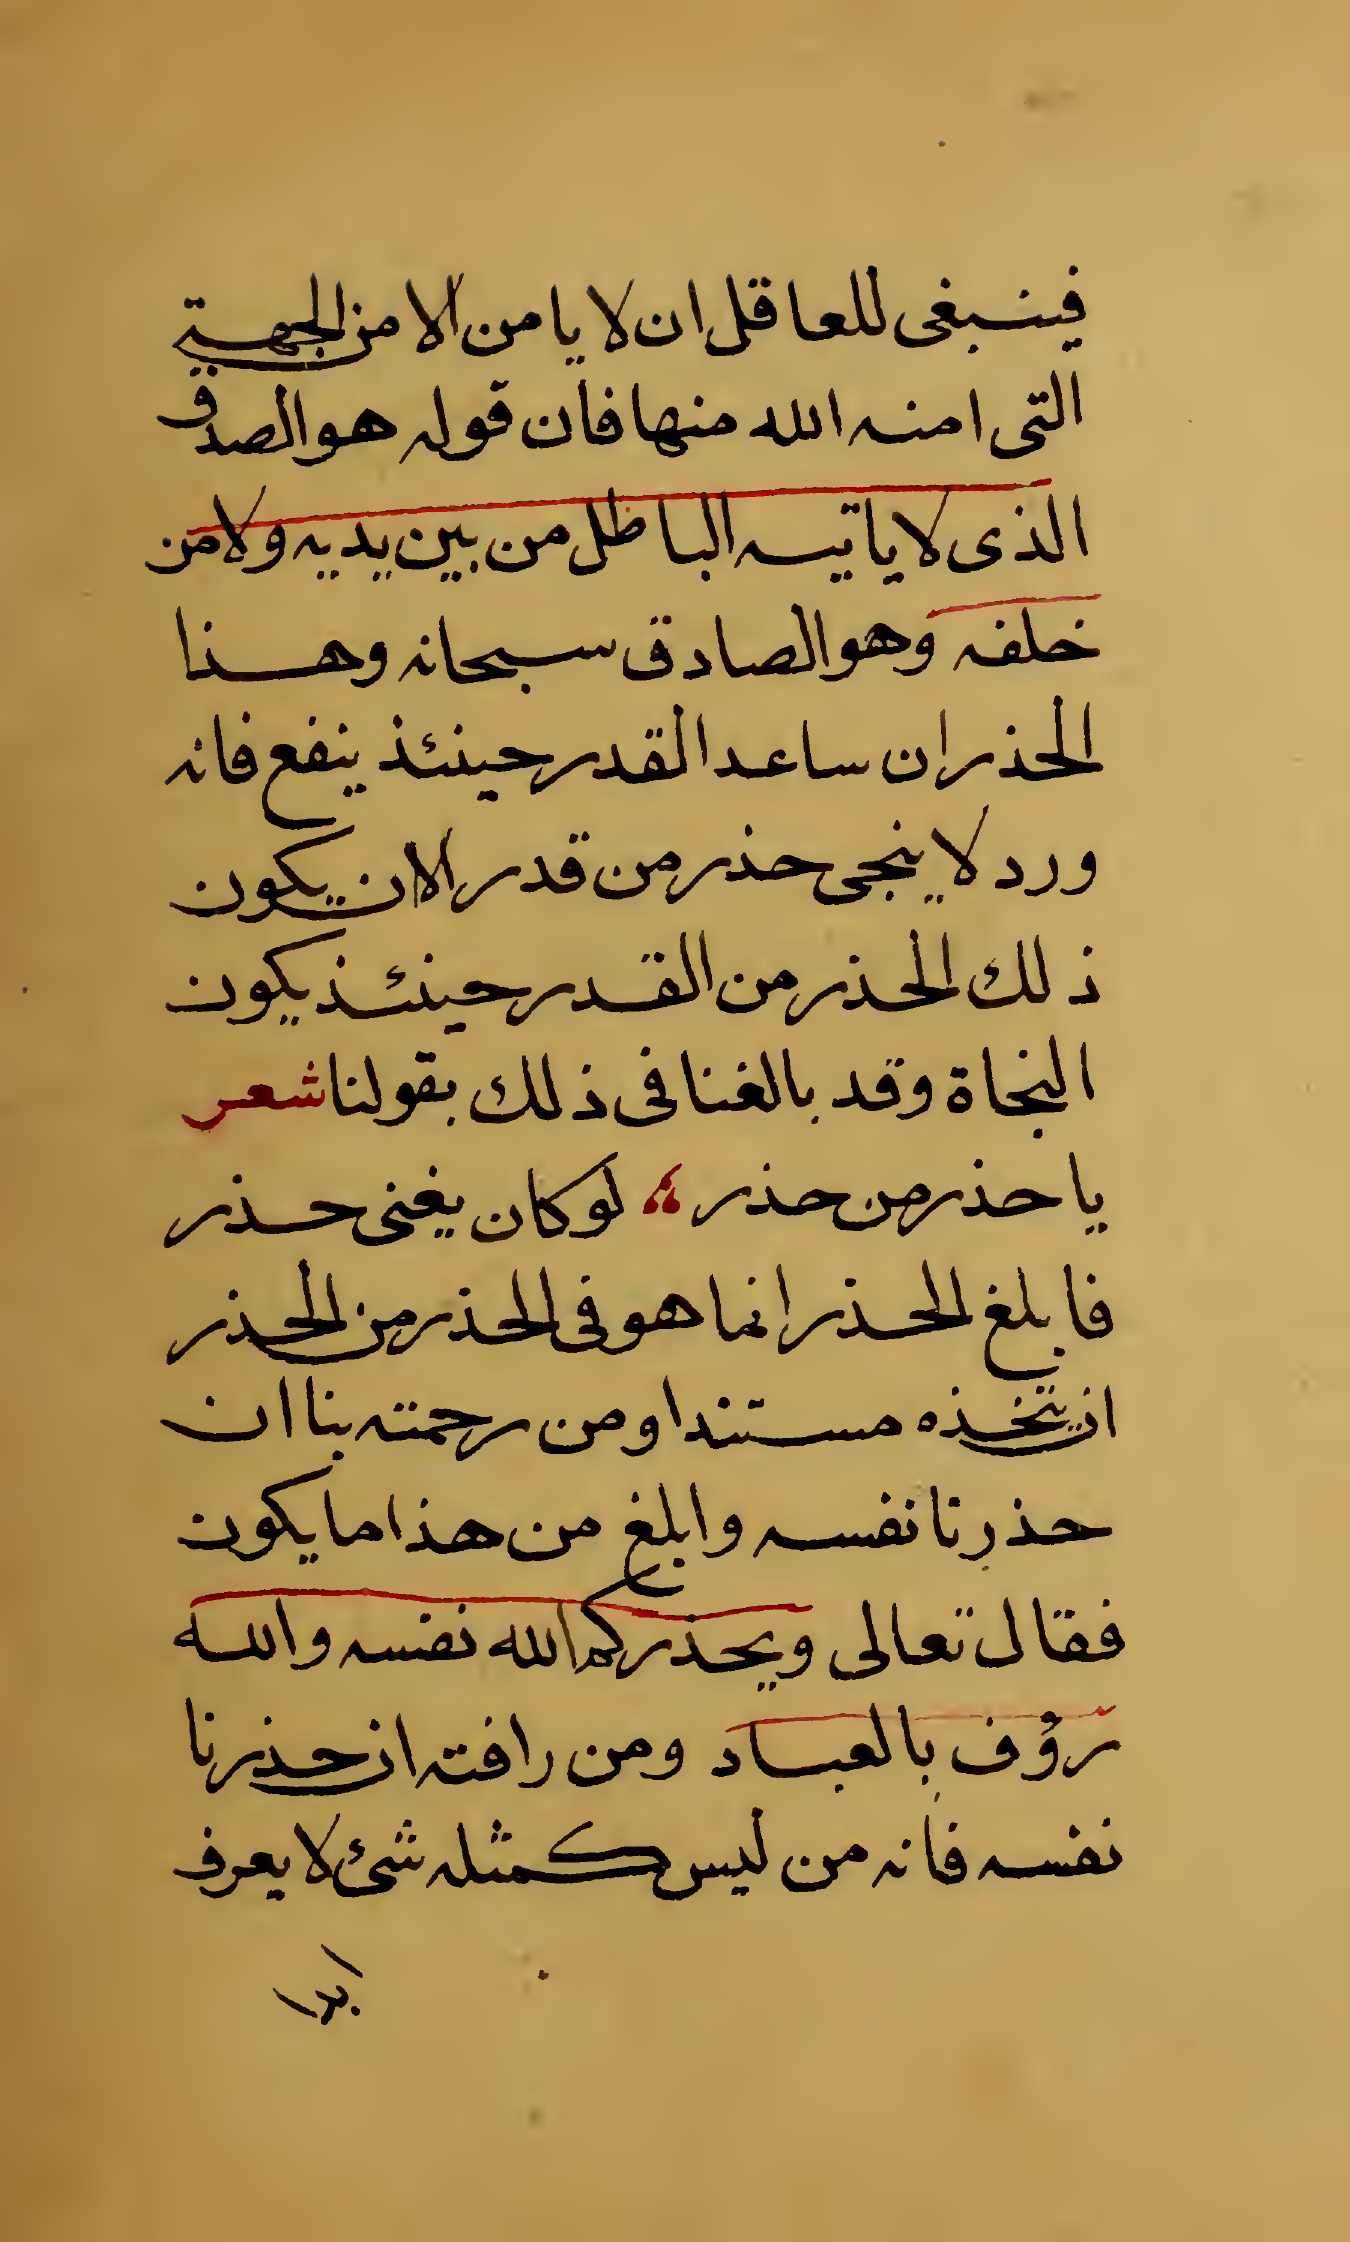 فينبغى للعاقل ان لا يامن الا من الجهة
التى امنه الله منها فان قوله هو الصدق
الذى لا ياتيه الباطل من بين يديه ولا من
خلفه وهو الصادق سبحانه وهذا
الحذر ان ساعد القدر حينئذ ينفع فانه
ورد لا ينجى حذر من قدر الا ان يكون
ذلك الحذر من القدر حينئذ يكون
النجاة وقد بالغنا فى ذلك بقولنا شعر
يا حذر من حذر لو كان يغنى حذر
فابلغ الحذر انما هو فى الحذر من الحذر
ان يتخذه مستندا ومن رحمته بنا ان
حذرنا نفسه وابلغ من هذا ما يكون
فقال تعالى ويحذركم الله نفسه والله
رؤف بالعباد ومن رافته ان حذرنا
نفسه فانه من ليس كمثله شئ لا يعرف